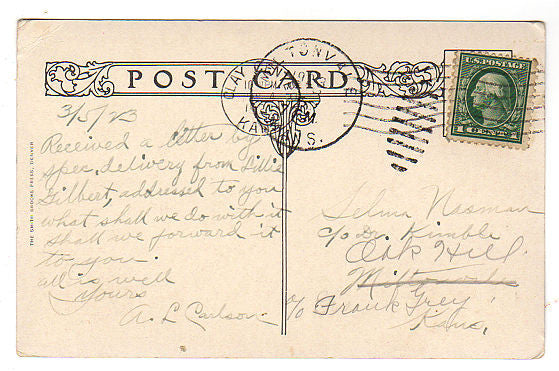 POST CARD
CLAY CENTER
KANS.
U.S. POSTAGE
1 CENT 1
THE SMITH-BROOKS PRESS, DENVER
3/5/23
Received a letter by
spec. delivery from Lillie
Gilbert, addressed to you
what shall we do with it
Shall we forward it
to you.
all is well
Yours
A. L. Carlson
Selma Nasman
c/o Dr. Kimble
Oak Hill
Miltonvale
c/o Frank Grey
Kans,